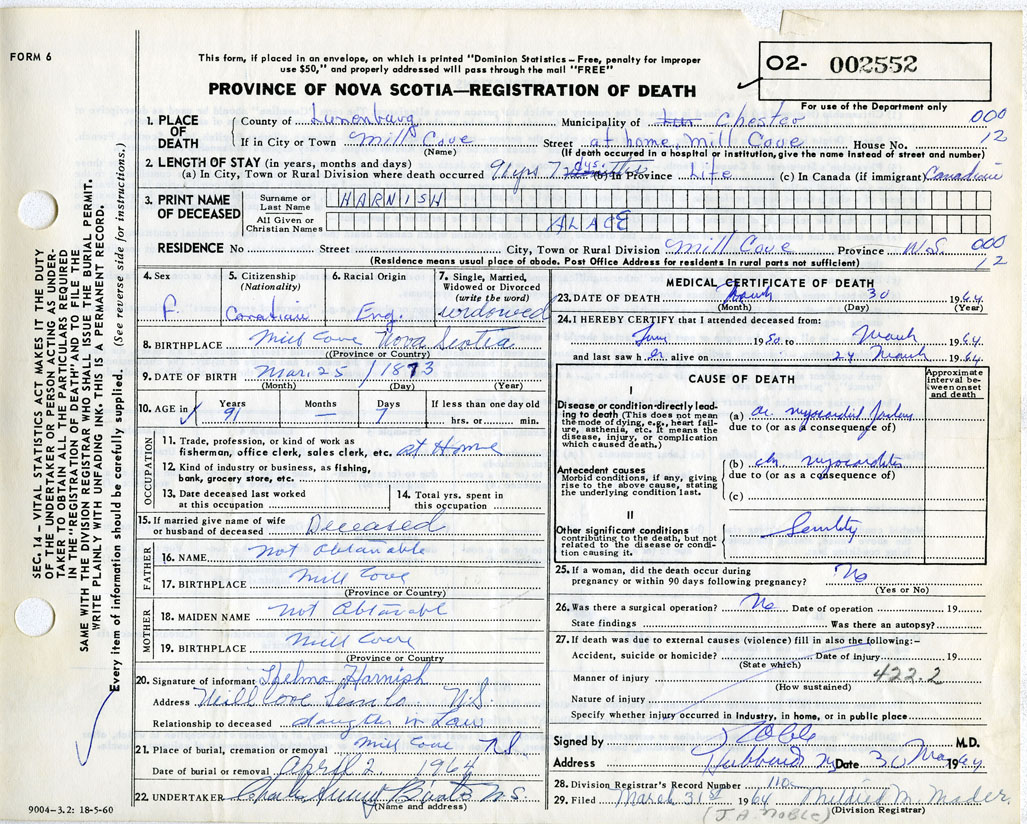 FORM 6
This form, if placed in an envelope, on which is printed "Dominion Statistics – Free, penalty for improper
use $50," and properly addressed will pass through the mail "FREE"
02- 002552
PROVINCE OF NOVA SCOTIA—REGISTRATION OF DEATH
For use of the Department only
1. PLACE OF DEATH
County of Lunenburg Municipality of Chester 000
If in City or Town Mill Cove Street at home, Mill Cove House No. 12
(Name) (If death occurred in a hospital or institution, give the name instead of street and number)
2. LENGTH OF STAY (in years, months and days)
(a) In City, Town or Rural Division where death occurred 91 yrs 7 dys. (b) In Province Life (c) In Canada (if immigrant) Canadian
3. PRINT NAME OF DECEASED
Surname or Last Name HARNISH
All Given or Christian Names ALACE
RESIDENCE No Street City, Town or Rural Division Mill Cove Province N.S. 000
(Residence means usual place of abode. Post Office Address for residents in rural parts not sufficient) 12
4. Sex F.
5. Citizenship (Nationality) Canadian
6. Racial Origin Eng.
7. Single, Married, Widowed or Divorced (write the word) widowed
8. BIRTHPLACE Mill Cove Nova Scotia
((Province or Country)
9. DATE OF BIRTH Mar. 25 / 1873
(Month) (Day) (Year)
10. AGE in Years 91 Months — Days 7 If less than one day old hrs. or min.
OCCUPATION
11. Trade, profession, or kind of work as
fisherman, office clerk, sales clerk, etc. at Home
12. Kind of industry or business, as fishing,
bank, grocery store, etc.
13. Date deceased last worked
at this occupation
14. Total yrs. spent in
this occupation
15. If married give name of wife
or husband of deceased Deceased
FATHER
16. NAME Not Obtanable
17. BIRTHPLACE Mill Cove
(Province or Country)
MOTHER
18. MAIDEN NAME Not Obtanable
19. BIRTHPLACE Mill Cove
(Province or Country
20. Signature of informant Thelma Harnish
Address Mill Cove N.S.
Relationship to deceased daughter in Law
21. Place of burial, cremation or removal Mill Cove N.S.
Date of burial or removal April 2 1964
22. UNDERTAKER N.S.
(Name and address)
9004-3.2: 18-5-60
MEDICAL CERTIFICATE OF DEATH
23. DATE OF DEATH March 30 1964
(Month) (Day) (Year)
24. I HEREBY CERTIFY that I attended deceased from:
1950 to March 1964
and last saw her alive on 24 March 1964
CAUSE OF DEATH
Approximate
interval be-
tween onset
and death
I
Disease or condition directly lead-
ing to death (This does not mean
the mode of dying, e.g., heart fail-
ure, asthenia, etc. It means the
disease, injury, or complication
which caused death.)
(a) ac. myocardial failure
due to (or as a consequence of)
Antecedent causes
Morbid conditions, if any, giving
rise to the above cause, stating
the underlying condition last.
(b) chr myocarditis
due to (or as a consequence of)
(c)
II
Other significant conditions
contributing to the death, but not
related to the disease or condi-
tion causing it.
Senility
25. If a woman, did the death occur during
pregnancy or within 90 days following pregnancy? No
(Yes or No)
26. Was there a surgical operation? No Date of operation 19
State findings Was there an autopsy?
27. If death was due to external causes (violence) fill in also the following:-
Accident, suicide or homicide? Date of injury 19
(State which)
Manner of injury 422.2
(How sustained)
Nature of injury
Specify whether injury occurred in industry, in home, or in public place
Signed by J Noble M.D.
Address Hubbards Date 30 Mar 1964
28. Division Registrar's Record Number
29. Filed March 31st 1964 Mildred M. Mader
(Division Registrar)
(J.A. NOBLE)
SEC. 14 – VITAL STATISTICS ACT MAKES IT THE DUTY
OF THE UNDERTAKER OR PERSON ACTING AS UNDER-
TAKER TO OBTAIN ALL THE PARTICULARS REQUIRED
IN THE "REGISTRATION OF DEATH" AND TO FILE THE
SAME WITH THE DIVISION REGISTRAR WHO SHALL ISSUE THE BURIAL PERMIT.
WRITE PLAINLY WITH UNFADING INK. THIS IS A PERMANENT RECORD.
Every item of information should be carefully supplied. (See reverse side for instructions.)